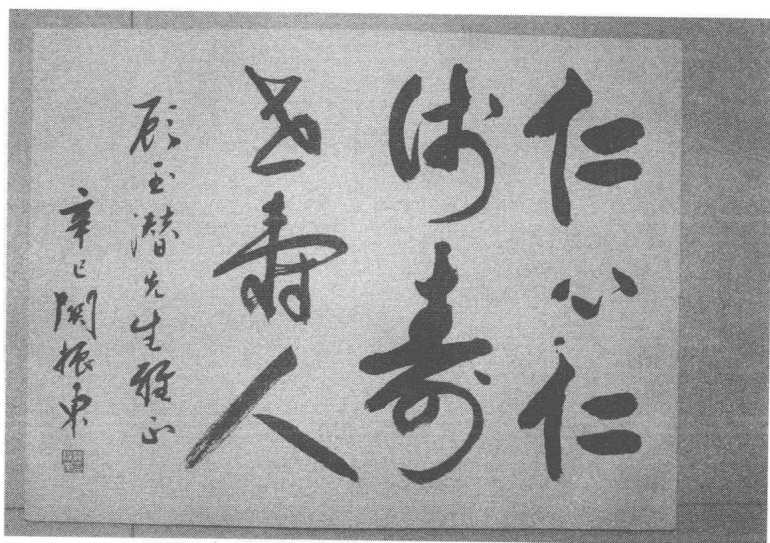 仁心仁
術寿
世寿人
顾玉潜先生雅正
辛巳關振東